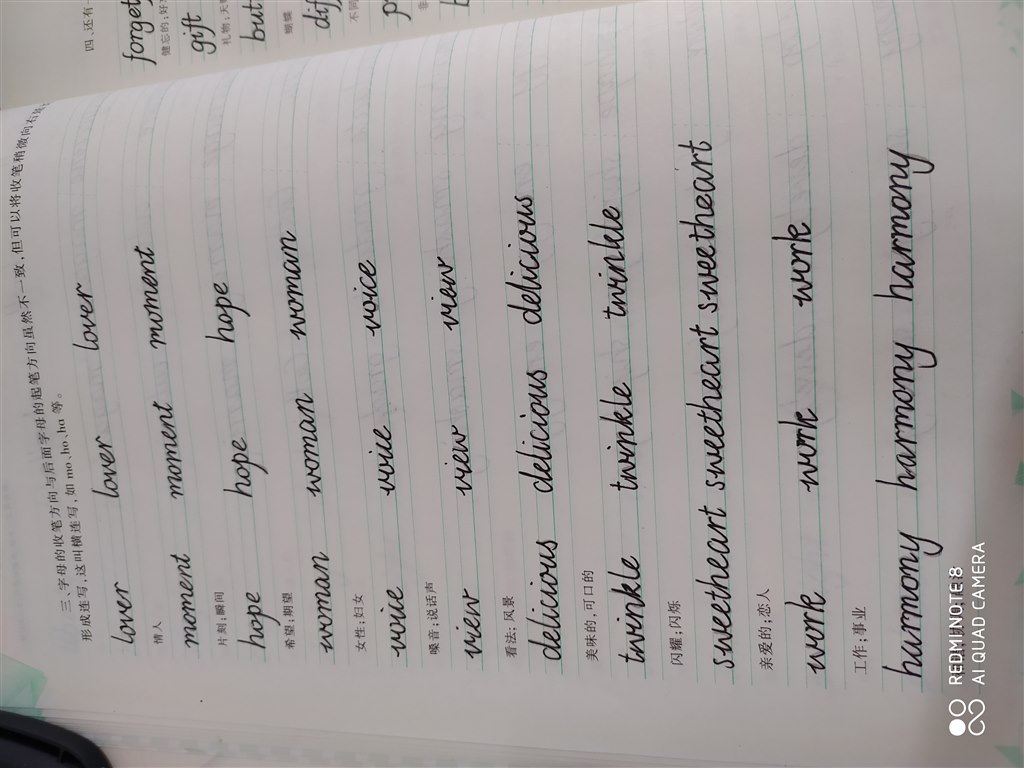 三、字母的收笔方向与后面字母的起笔方向虽然不一致，但可以将收笔稍微向右
形成连写，这叫横连写，如 mo、ho、ha 等。
lover lover lover
情人
moment moment moment
片刻；瞬间
hope hope hope
希望；期望
woman woman woman
女性；妇女
voice voice voice
嗓音；说话声
view view view
看法；风景
delicious delicious delicious
美味的；可口的
twinkle twinkle twinkle
闪耀；闪烁
sweetheart sweetheart sweetheart
亲爱的；恋人
work work work
工作；事业
harmony harmony harmony
四、还有
forget
健忘的；好
gift
礼物；天
but
蝴蝶
dif
不同
REDMI NOTE 8
AI QUAD CAMERA